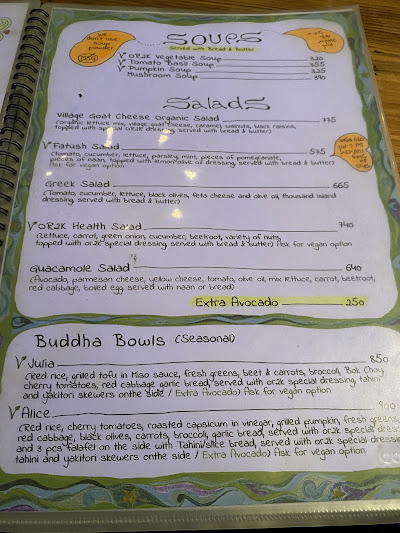 We don't use soup powder
SOUPS
Served with Bread & Butter
V OR2K Vegetable Soup 320
V Tomato Basil Soup 355
V Pumpkin Soup 325
Mushroom Soup
Salads
Village Goat Cheese Organic Salad 775
(Organic lettuce mix, village goat cheese, caramel, walnuts, black raisins,
topped with special OR2K dressing, served with bread & butter)
V Fatush Salad 575
(Tomato, cucumber, lettuce, parsley, mint, pieces of pomegranate,
pieces of naan, topped with lemon/olive oil dressing, served with bread & butter)
Ask for vegan option
Greek Salad 665
(Tomato, cucumber, lettuce, black olives, feta cheese and olive oil, thousand island
dressing, served with bread & butter)
V OR2K Health Salad 740
(Lettuce, carrot, green onion, cucumber, beetroot, variety of nuts,
topped with or2k special dressing, served with bread & butter) Ask for vegan option
Guacamole Salad 640
(Avocado, parmesan cheese, yellow cheese, tomato, olive oil, mix lettuce, carrot, beetroot,
red cabbage, boiled egg served with naan or bread)
Extra Avocado 250
Buddha Bowls (Seasonal)
V Julia 850
(Red rice, grilled tofu in Miso sauce, fresh greens, beet & carrots, broccoli, Bok Choy,
cherry tomatoes, red cabbage garlic bread, served with or2k special dressing, tahini
and yakitori skewers onthe side / Extra Avocado) Ask for vegan option
V Alice 900
(Red rice, cherry tomatoes, roasted capsicum in vinegar, grilled pumpkin, fresh greens,
red cabbage, black olives, carrots, broccoli, garlic bread, served with or2k special dressing
and 3 pcs falafel on the side with Tahini/slice bread, served with or2k special dressing
tahini and yakitori skewers on the side / Extra Avocado) Ask for vegan option